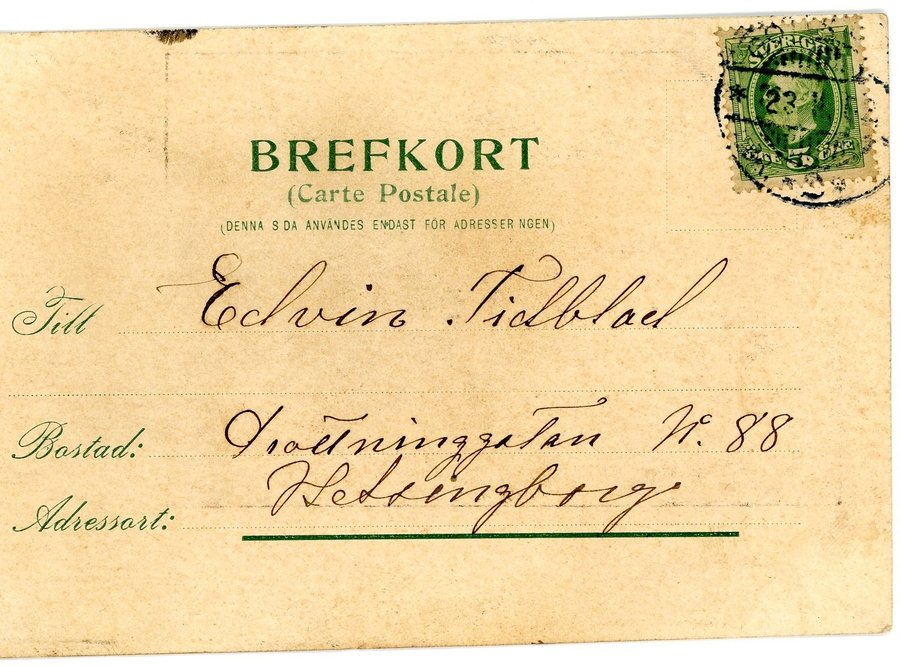 SVERIGE
23
5
ÖRE ÖRE
BREFKORT
(Carte Postale)
(DENNA SIDA ANVÄNDES ENDAST FÖR ADRESSERINGEN)
Till Edvin Tidblad
Bostad: Drottninggatan No. 88
Adressort: Helsingborg